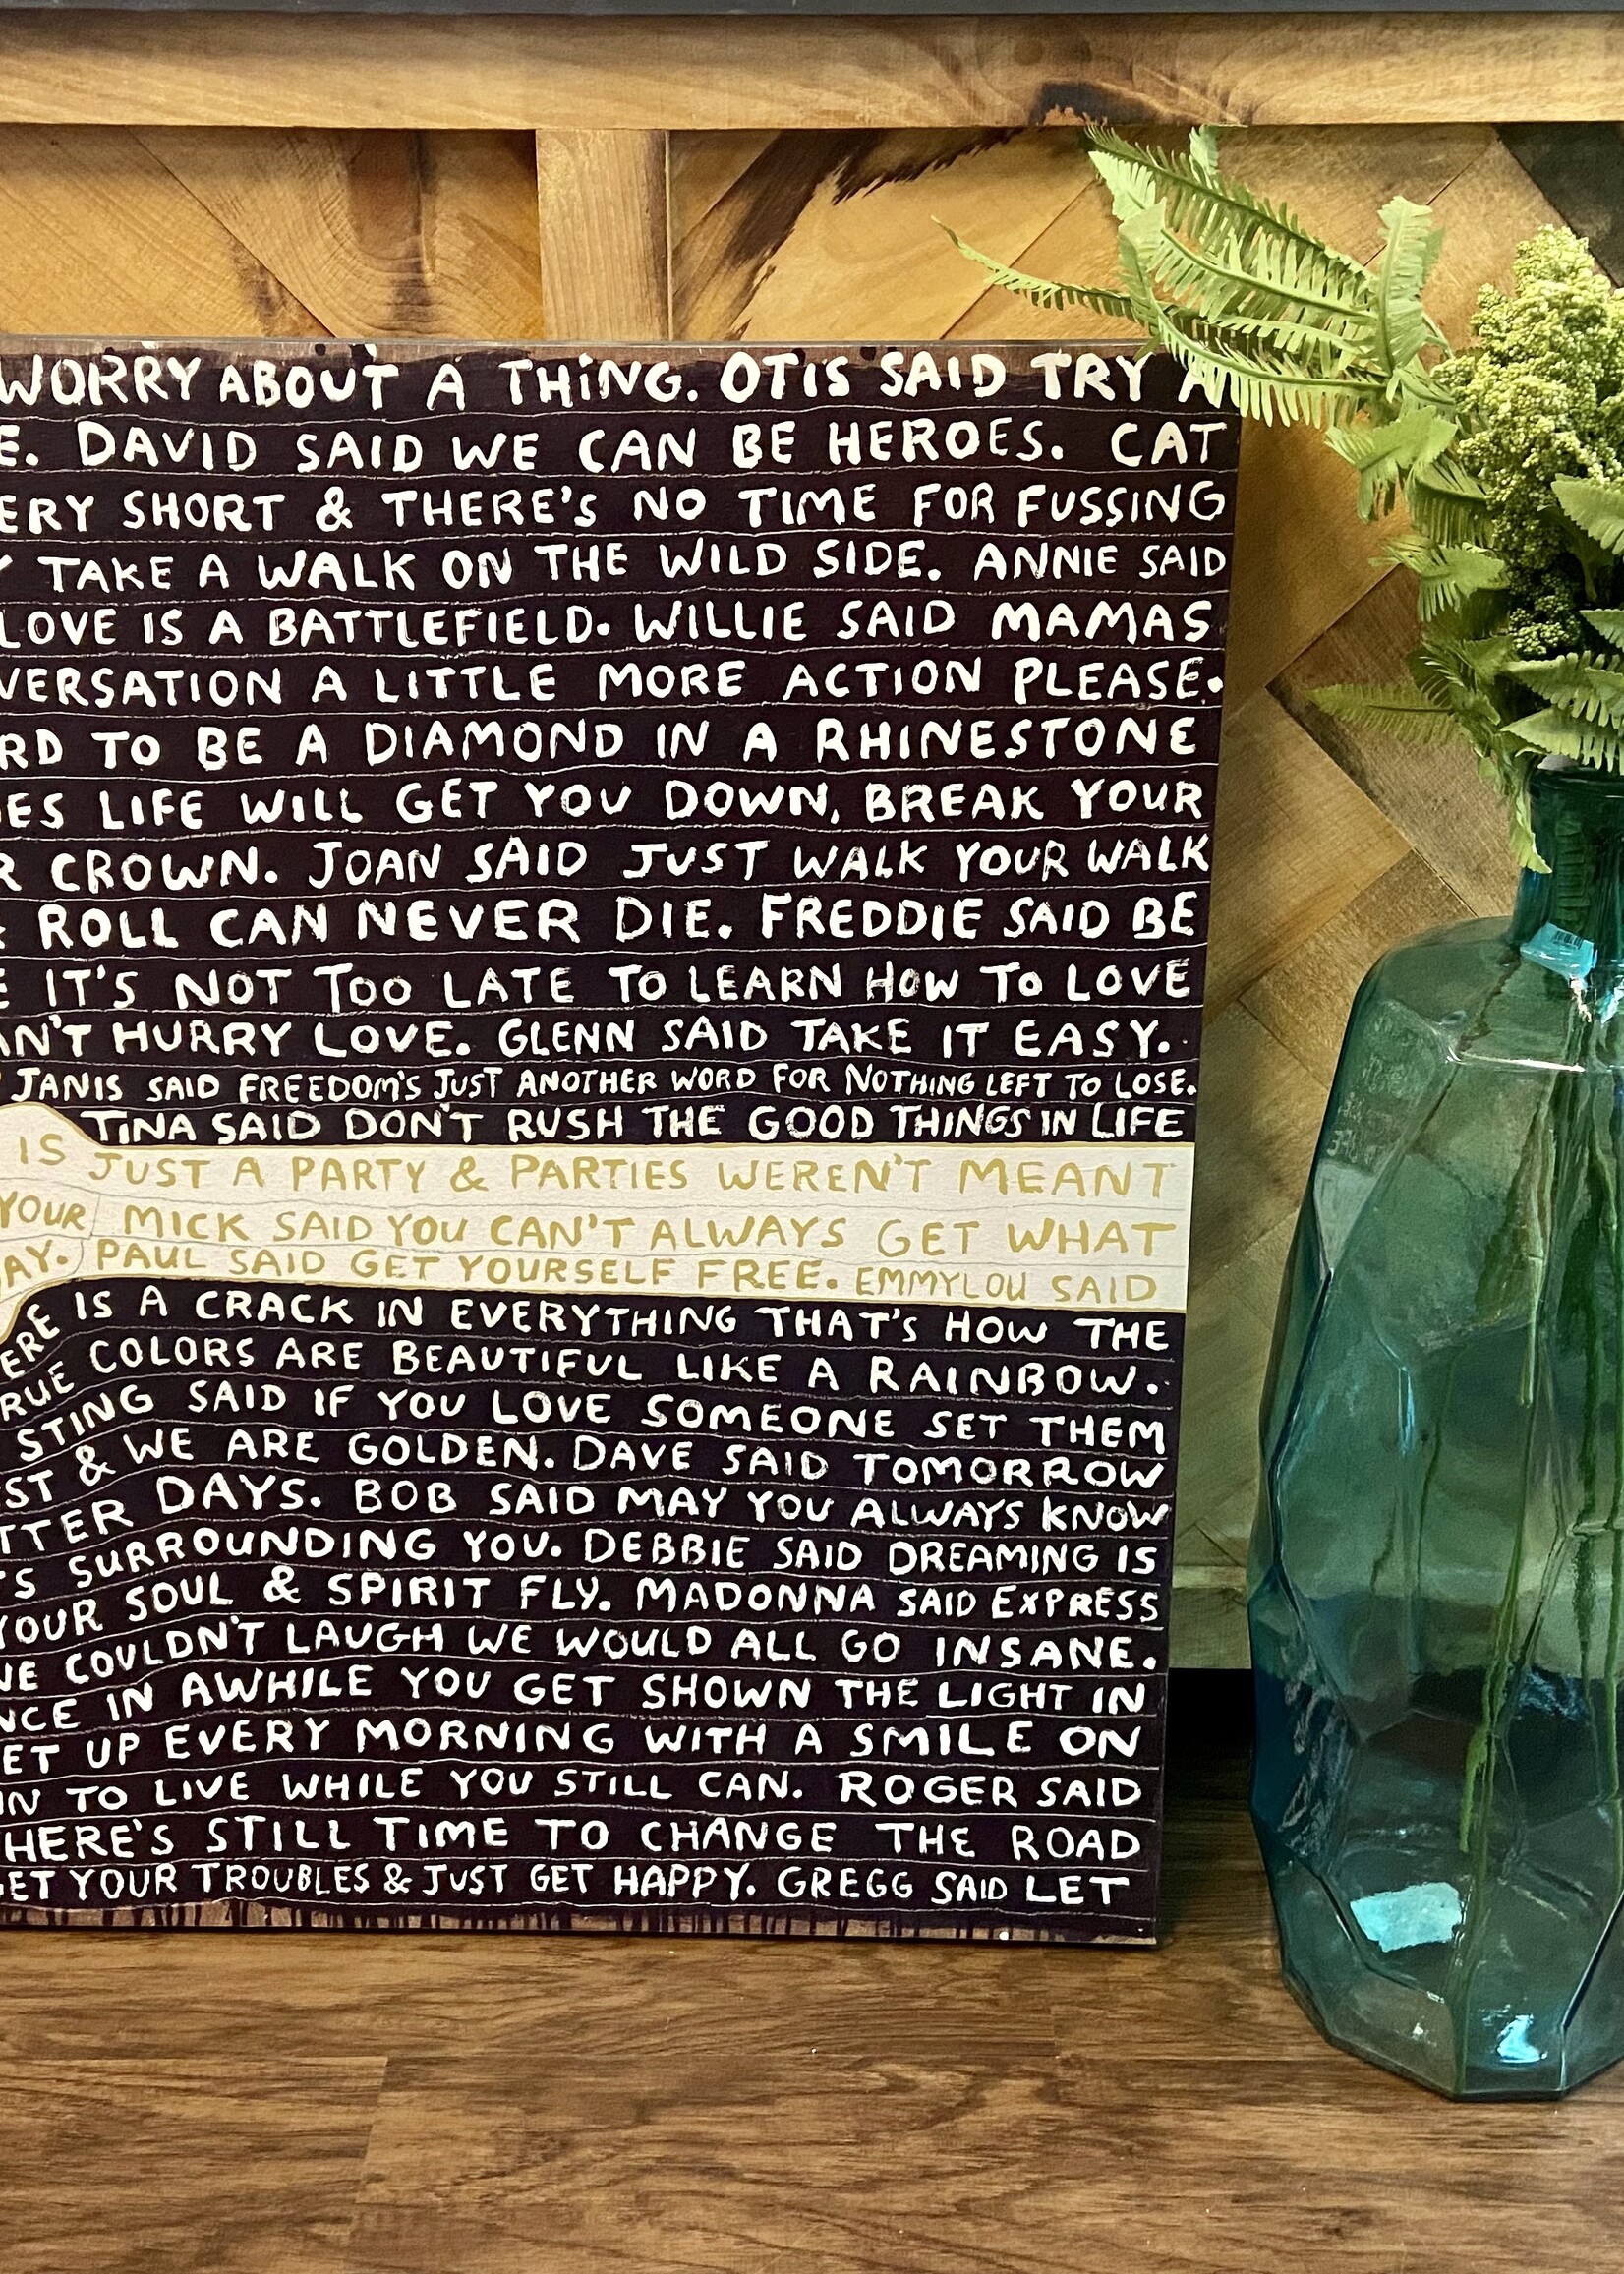 WORRY ABOUT A THING. OTIS SAID TRY A
E. DAVID SAID WE CAN BE HEROES. CAT
ERY SHORT & THERE'S NO TIME FOR FUSSING
Y TAKE A WALK ON THE WILD SIDE. ANNIE SAID
LOVE IS A BATTLEFIELD. WILLIE SAID MAMAS
VERSATION A LITTLE MORE ACTION PLEASE.
RD TO BE A DIAMOND IN A RHINESTONE
ES LIFE WILL GET YOU DOWN, BREAK YOUR
R CROWN. JOAN SAID JUST WALK YOUR WALK
& ROLL CAN NEVER DIE. FREDDIE SAID BE
E IT'S NOT TOO LATE TO LEARN HOW TO LOVE
AN'T HURRY LOVE. GLENN SAID TAKE IT EASY.
JANIS SAID FREEDOM'S JUST ANOTHER WORD FOR NOTHING LEFT TO LOSE.
TINA SAID DON'T RUSH THE GOOD THINGS IN LIFE
IS JUST A PARTY & PARTIES WEREN'T MEANT
YOUR MICK SAID YOU CAN'T ALWAYS GET WHAT
AY. PAUL SAID GET YOURSELF FREE. EMMYLOU SAID
ERE IS A CRACK IN EVERYTHING THAT'S HOW THE
RUE COLORS ARE BEAUTIFUL LIKE A RAINBOW.
STING SAID IF YOU LOVE SOMEONE SET THEM
ST & WE ARE GOLDEN. DAVE SAID TOMORROW
TTER DAYS. BOB SAID MAY YOU ALWAYS KNOW
TS SURROUNDING YOU. DEBBIE SAID DREAMING IS
YOUR SOUL & SPIRIT FLY. MADONNA SAID EXPRESS
WE COULDN'T LAUGH WE WOULD ALL GO INSANE.
NCE IN AWHILE YOU GET SHOWN THE LIGHT IN
ET UP EVERY MORNING WITH A SMILE ON
IN TO LIVE WHILE YOU STILL CAN. ROGER SAID
HERE'S STILL TIME TO CHANGE THE ROAD
GET YOUR TROUBLES & JUST GET HAPPY. GREGG SAID LET